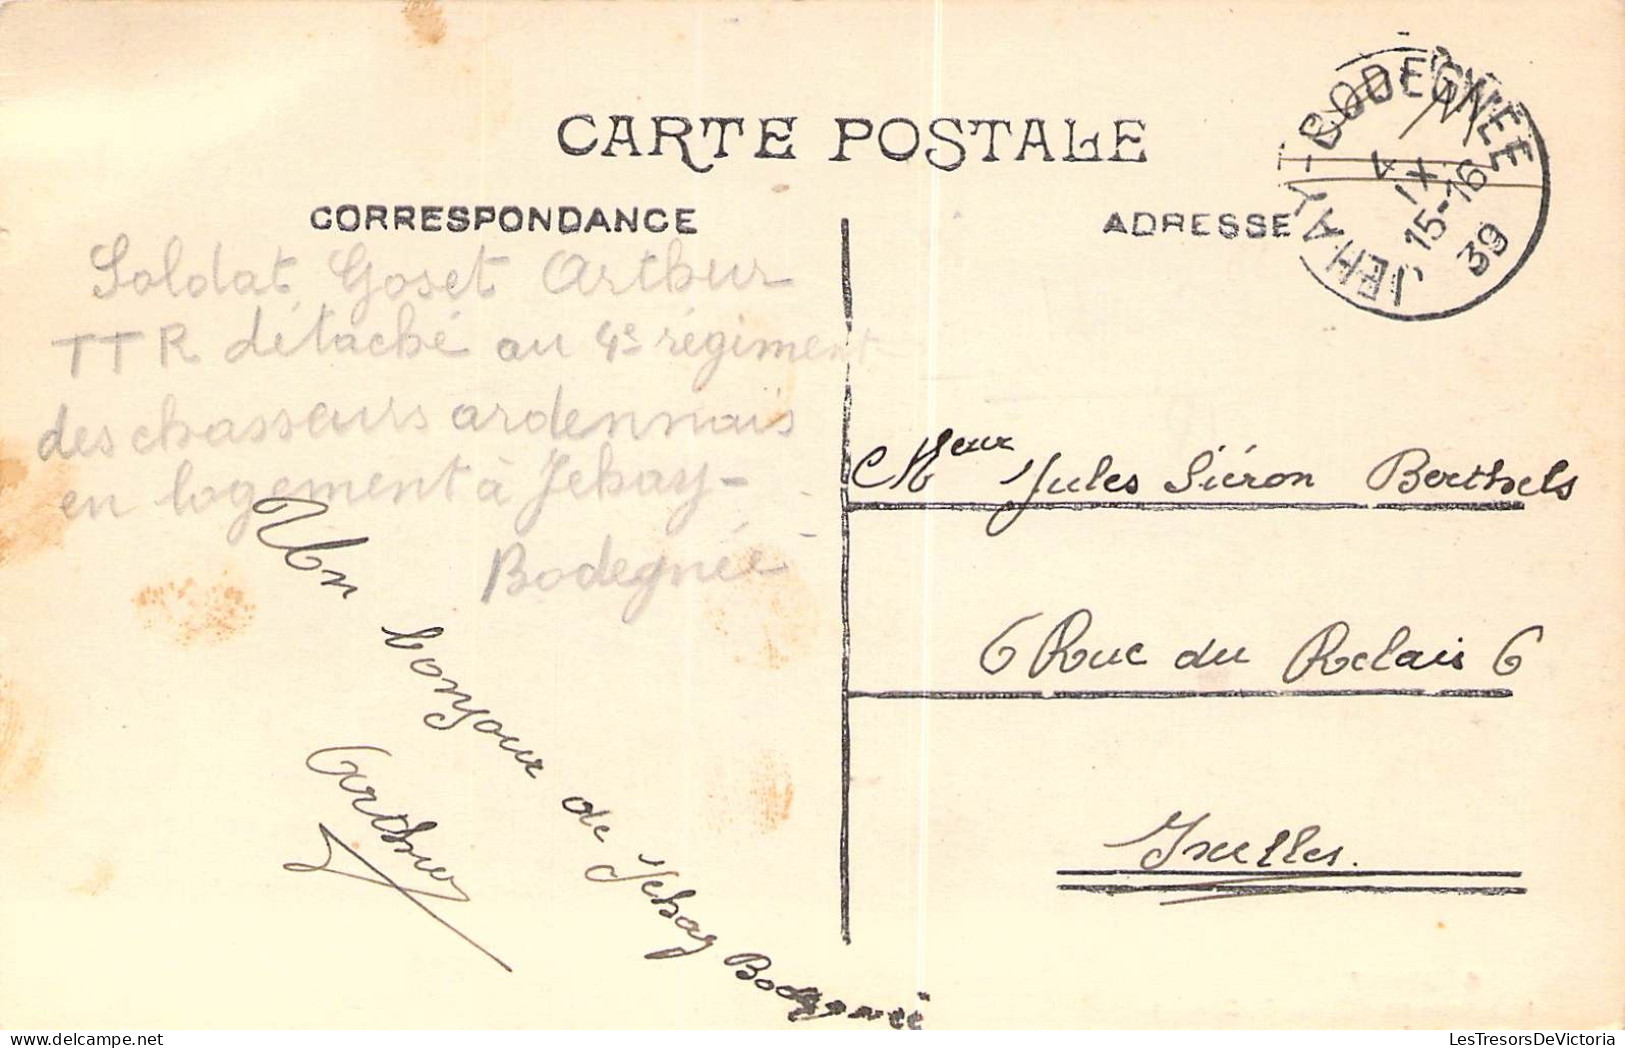 CARTE POSTALE
CORRESPONDANCE
ADRESSE
JEHAY-BODEGNÉE
4
IX
15-16
39
Soldat Goset Arthur
TTR détaché au 4e régiment
des chasseurs ardennais
en logement à Jehay-
Bodegnée
Un bonjour de Jehay Bodegnée
Arthur
Meur Jules Siéron Berthels
6 Rue du Relais 6
Ixelles.
LesTresorsDeVictoria.com